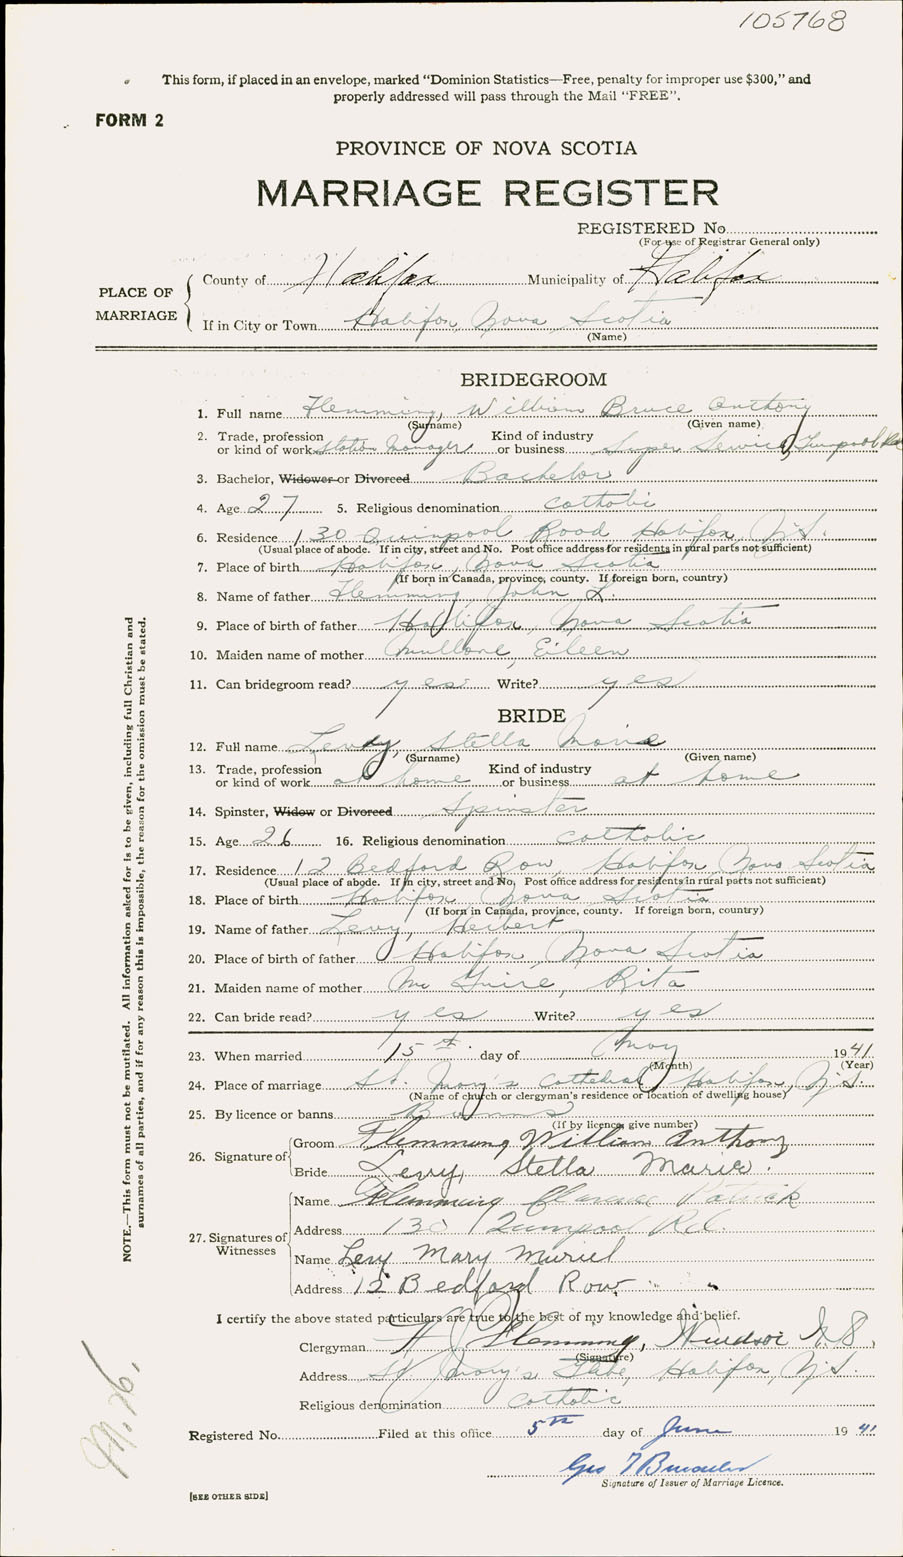 105768
This form, if placed in an envelope, marked “Dominion Statistics—Free, penalty for improper use $300,” and
properly addressed will pass through the Mail “FREE”.
FORM 2
PROVINCE OF NOVA SCOTIA
MARRIAGE REGISTER
REGISTERED No.
(For use of Registrar General only)
PLACE OF MARRIAGE
County of Halifax Municipality of Halifax
If in City or Town Halifax, Nova Scotia
(Name)
BRIDEGROOM
1. Full name Flemming, William Bruce Anthony
(Surname) (Given name)
2. Trade, profession or kind of work Station Manager Kind of industry or business Super Service, Quinpool Rd
3. Bachelor, Widower or Divorced Bachelor
4. Age 27 5. Religious denomination Catholic
6. Residence 130 Quinpool Road Halifax, N.S.
(Usual place of abode. If in city, street and No. Post office address for residents in rural parts not sufficient)
7. Place of birth Halifax, Nova Scotia
(If born in Canada, province, county. If foreign born, country)
8. Name of father Flemming, John L.
9. Place of birth of father Halifax, Nova Scotia
10. Maiden name of mother Mullane, Eileen
11. Can bridegroom read? yes Write? yes
BRIDE
12. Full name Levy, Stella Marie
(Surname) (Given name)
13. Trade, profession or kind of work at home Kind of industry or business at home
14. Spinster, Widow or Divorced Spinster
15. Age 26 16. Religious denomination Catholic
17. Residence 12 Bedford Row, Halifax, Nova Scotia
(Usual place of abode. If in city, street and No. Post office address for residents in rural parts not sufficient)
18. Place of birth Halifax Nova Scotia
(If born in Canada, province, county. If foreign born, country)
19. Name of father Levy, Herbert
20. Place of birth of father Halifax, Nova Scotia
21. Maiden name of mother Mc Guire, Rita
22. Can bride read? yes Write? yes
23. When married 15th. day of May 1941
(Month) (Year)
24. Place of marriage St. Mary's Cathedral, Halifax, N.S.
(Name of church or clergyman's residence or location of dwelling house)
25. By licence or banns Banns
(If by licence, give number)
26. Signature of
Groom Flemming William Anthony
Bride Levy, Stella Marie.
27. Signatures of Witnesses
Name Flemming Clarence Patrick
Address 130 Quinpool Rd.
Name Levy Mary Muriel
Address 12 Bedford Row
I certify the above stated particulars are true to the best of my knowledge and belief.
Clergyman H J Flemming, Windsor N S.
(Signature)
Address St. Mary's Glebe Halifax, N.S.
Religious denomination Catholic
Registered No. Filed at this office 5th day of June 1941
Geo T
Signature of Issuer of Marriage Licence.
[SEE OTHER SIDE]
NOTE.—This form must not be mutilated. All information asked for is to be given, including full Christian and
surnames of all parties, and if for any reason this is impossible, the reason for the omission must be stated.